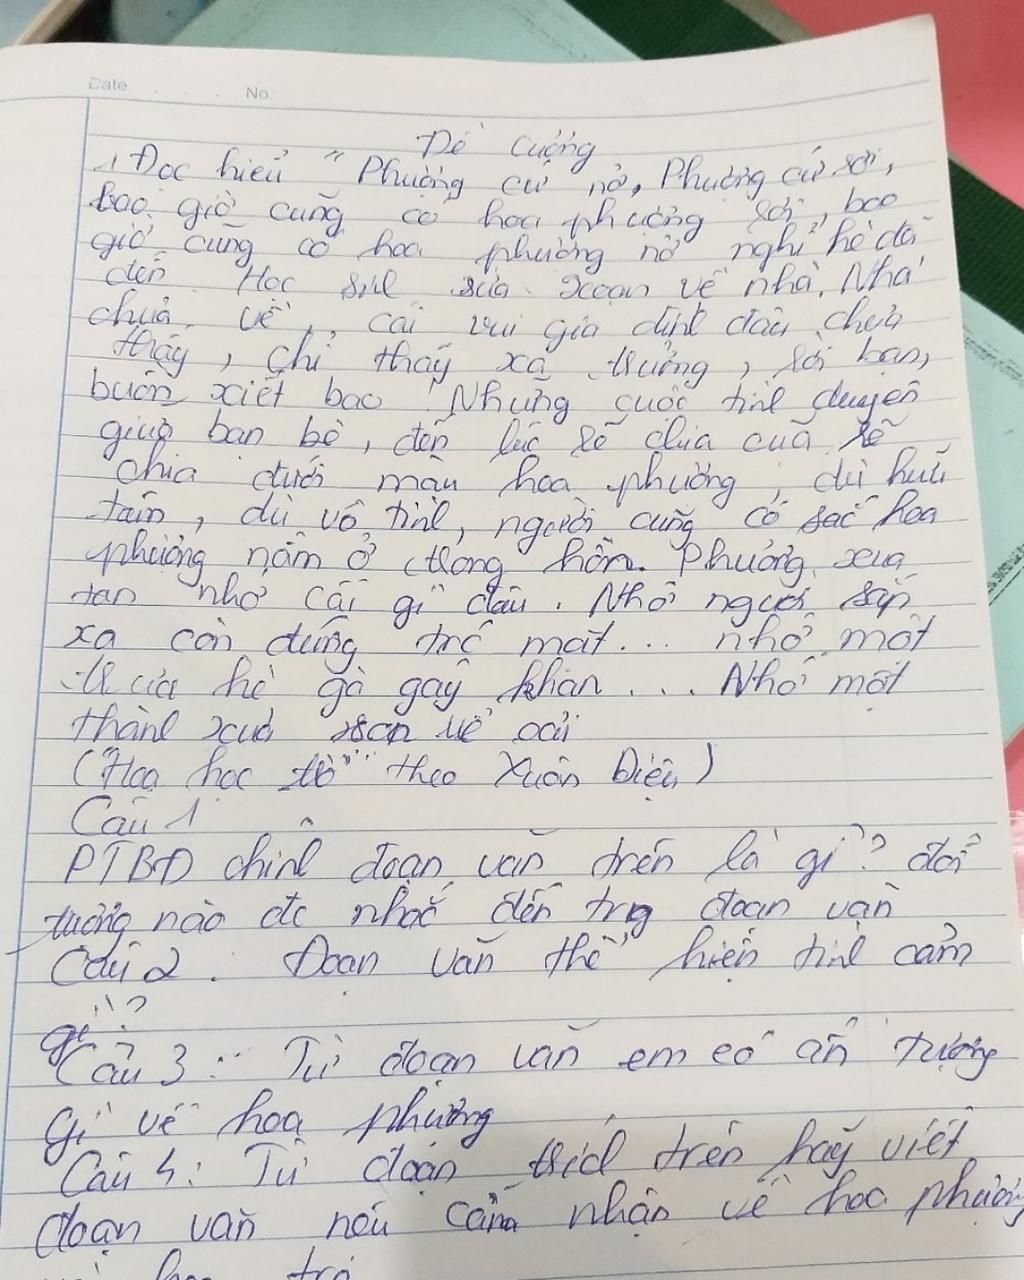 Date No.
Đề cương
1 Đọc hiểu " Phượng cứ nở, Phượng cứ rơi,
bao giờ cũng có hoa phượng rơi, bao
giờ cũng có hoa phượng nở nghỉ hè đã
đến. Học sinh sửa soạn về nhà. Nhà
chưa về, cái vui gia đình đâu chưa
thấy, chỉ thấy xa trường, rời bạn,
buồn xiết bao! Những cuộc tình duyên
giữa bạn bè, đến lúc rẽ chia cuả rẽ
chia dưới màu hoa phượng, dù hữu
tâm, dù vô tình, người cũng có sắc hoa
phượng nằm ở trong hồn. Phượng xui
ta nhớ cái gì đâu. Nhớ người sắp
xa còn đứng trc mặt... nhớ một
trưa hè gà gáy khan .... Nhớ một
thành xưa son uể oải
(Hoa học trò" theo Xuân Diệu)
Câu 1
PTBĐ chính đoạn văn trên là gì? đối
tượng nào đc nhắc đến trg đoạn văn
Câu 2. Đoạn văn thể hiện tình cảm
gì?
Câu 3: Từ đoạn văn em có ấn tượng
gì về hoa phượng
Câu 4: Từ đoạn trích trên hãy viết
đoạn văn nêu cảm nhận về hoa phượng
học trò